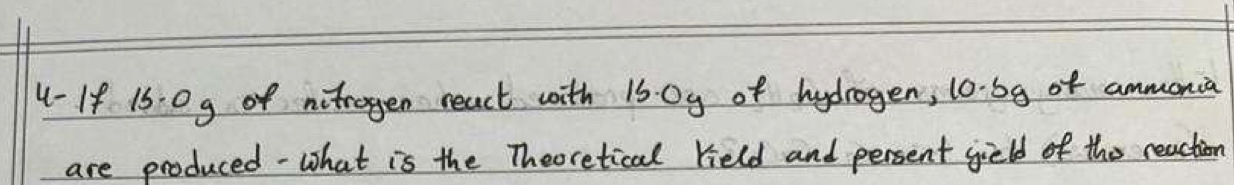 4- If 15.0g of nitrogen react with 15.0g of hydrogen, 10.5g of ammonia
are produced - what is the Theoretical Yield and persent yield of the reaction